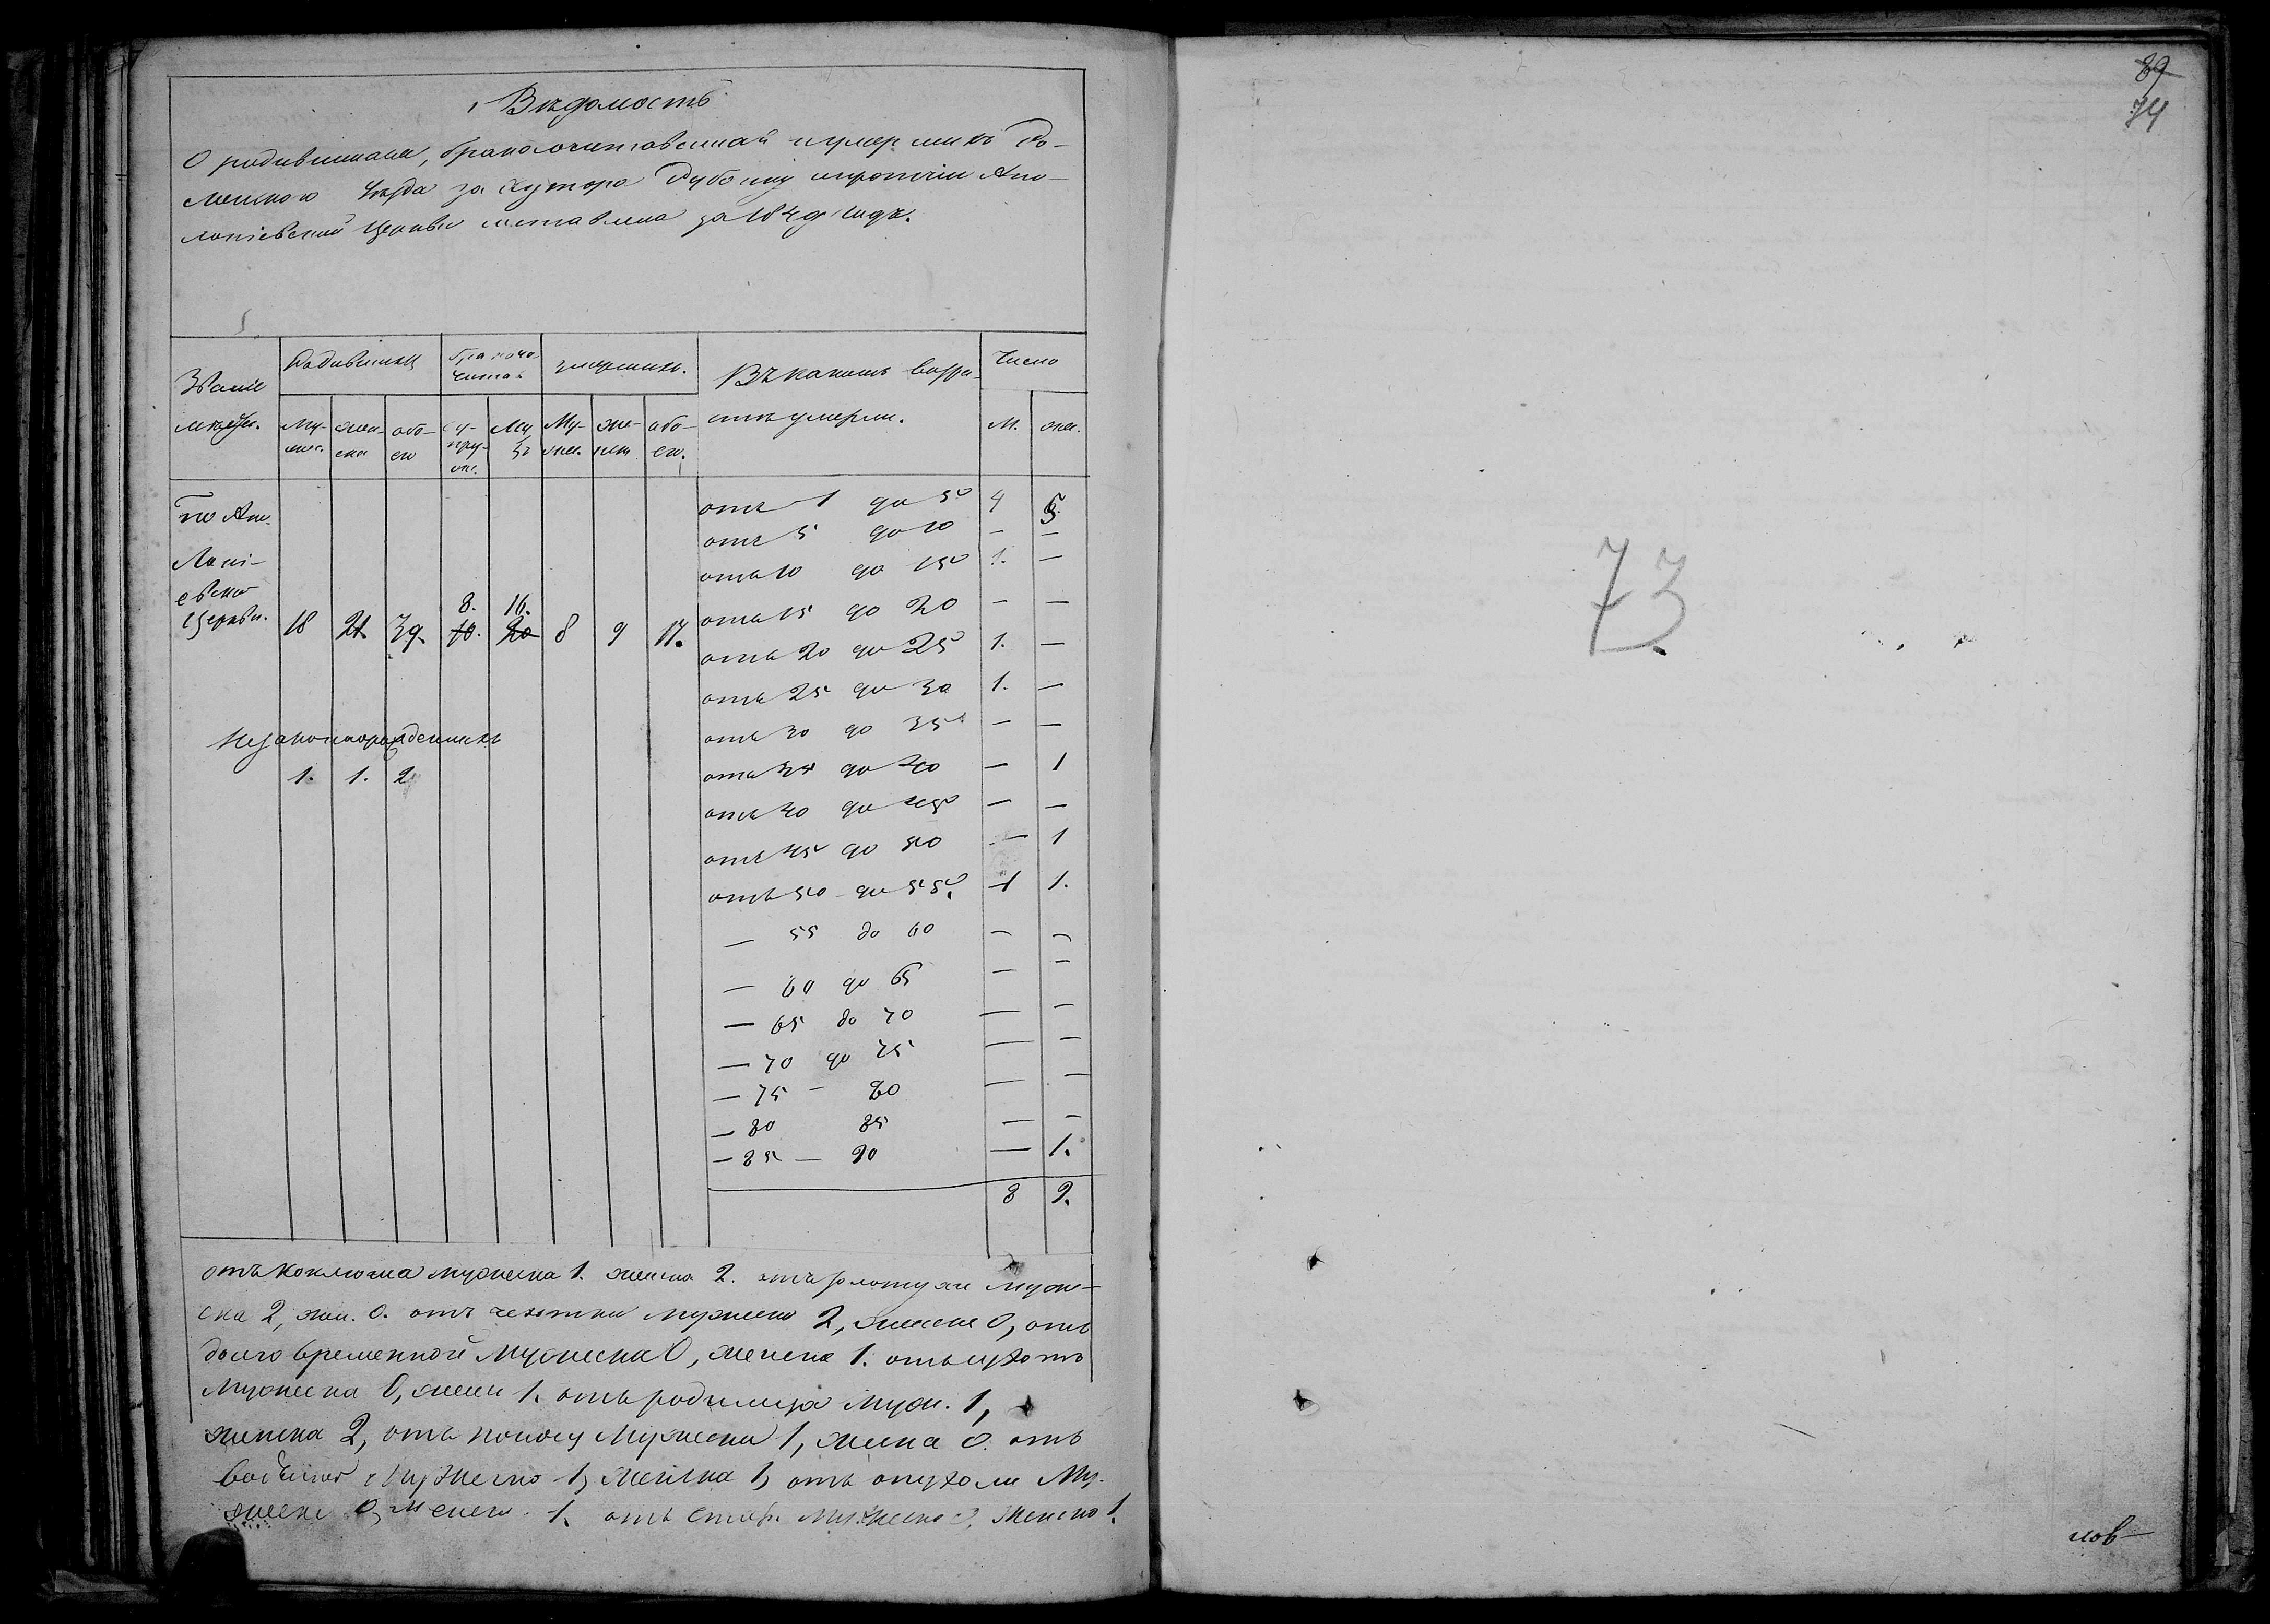 Вѣдомость
О родившихся, бракосочетавшихся и умершихъ Ро-
менского уѣзда за хутора
Церкви составлена за 1849 годъ.
Званіе
мѣстъ.
Родившихся
бракосо-
четав
умершихъ.
Въ какихъ возра-
стѣ умерли.
Число
Му-
жес.
жен-
ска
обо-
его
су-
пру-
же.
Му-
жес.
же-
нск
обо-
его.
М.
жен.
по Апо-
лоні-
евско
Церкви.
18 21. 39. 8. 10. 16. 20 8 9 17.
Незаконнорожденныхъ
1. 1. 2
отъ 1 до 5 4 5
отъ 5 до 10 — —
отъ 10 до 15 1. —
отъ 15 до 20 — —
отъ 20 до 25 1. —
отъ 25 до 30 1. —
отъ 30 до 35 — —
отъ 35 до 40 — 1
отъ 40 до 45 — —
отъ 45 до 50 — 1
отъ 50 до 55. 1 1.
— 55 до 60 — —
— 60 до 65 — —
— 65 до 70 — —
— 70 до 75 — —
— 75 — 80 — —
— 80 85 — —
— 85 — 90 — 1.
8 9.
отъ коклюша мужеска 1. женска 2. отъ муж-
ска 2, жен. 0. отъ чехотки мужеска 2, женска 0, отъ
долговременной мужеска 0, женска 1. отъ
мужеска 0, женск 1. отъ родимца муж. 1,
женска 2, отъ поносу мужеска 1, женска 0. отъ
мужеско 1, женска 1, отъ опухоли му-
жеска 0, женск. 1. отъ стар. мужеско 0, женско 1.
89
74
73
нов—